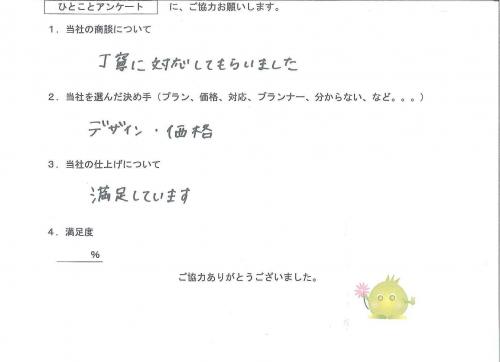 ひとことアンケート に、ご協力お願いします。
1．当社の商談について
丁寧に対応してもらいました
2．当社を選んだ決め手（プラン、価格、対応、プランナー、分からない、など。。。）
デザイン・価格
3．当社の仕上げについて
満足しています
4．満足度
%
ご協力ありがとうございました。